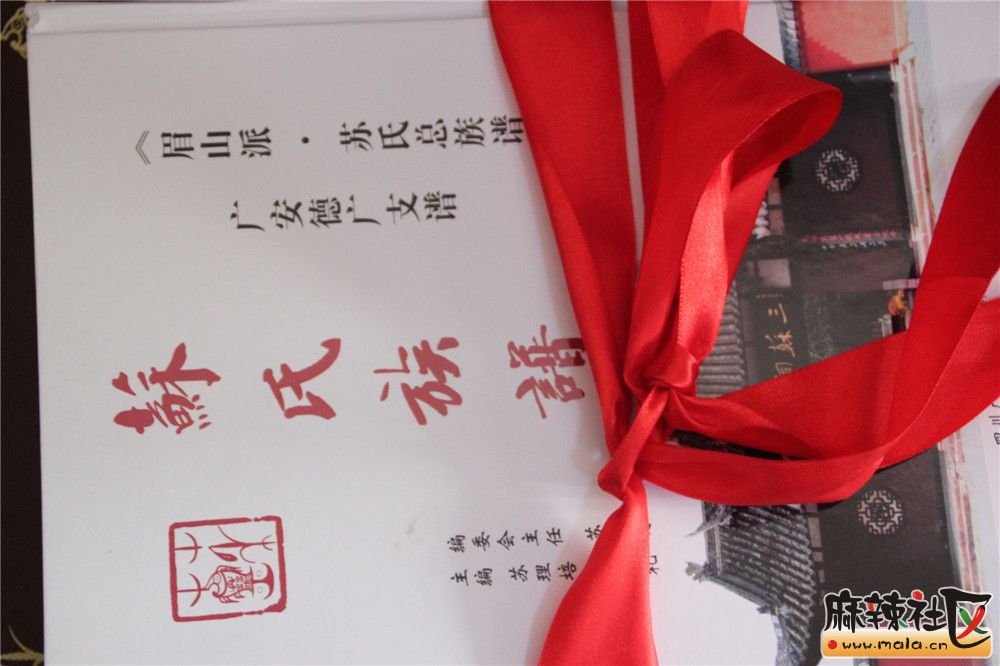 《眉山派·苏氏总族谱
广安德广支谱
蘇氏族譜
编委会主任 苏
主编 苏理培
礼
三蘇祠
四川
麻辣社区
www.mala.cn